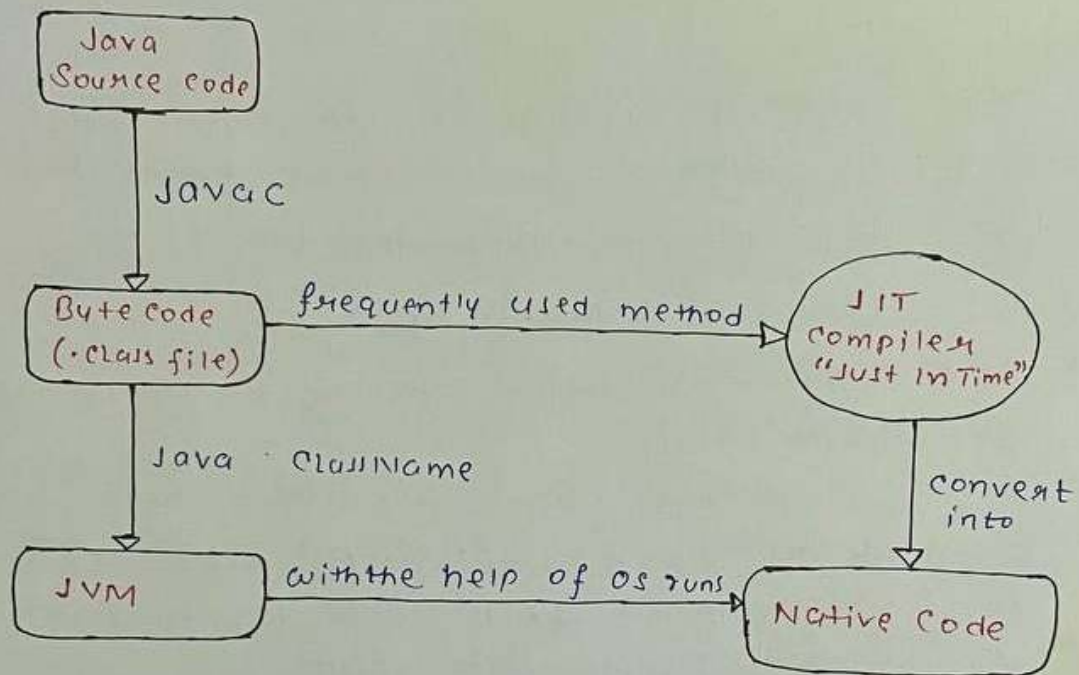 Java
Source code
Javac
Byte code
(.class file)
frequently used method
JIT
compiler
"Just In Time"
Java ClassName
convert
into
JVM
with the help of os runs
Native Code